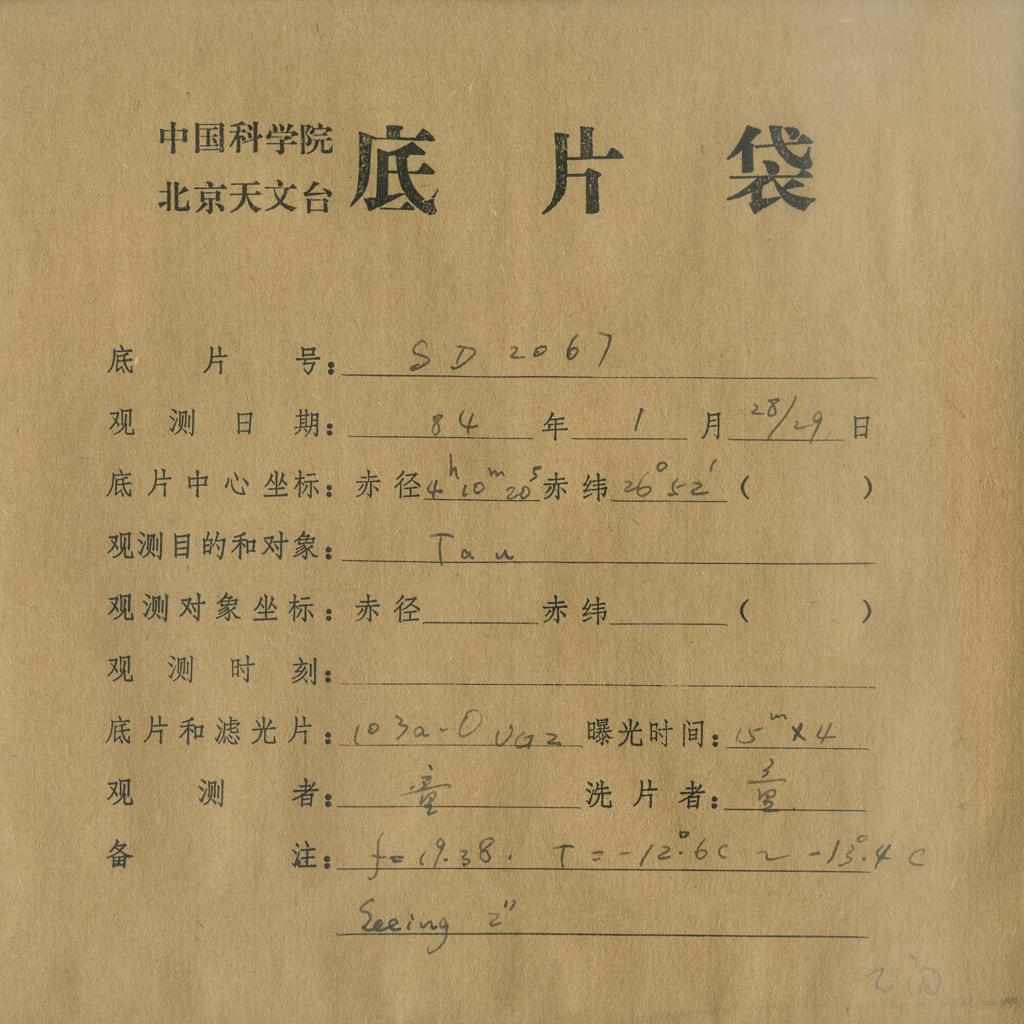 中国科学院
北京天文台 底片袋
底片号: SD 2067
观测日期: 84 年 1 月 28/29 日
底片中心坐标: 赤径 4h 10m 20s 赤纬 26°52′ ( )
观测目的和对象: Tau
观测对象坐标: 赤径 赤纬 ( )
观测时刻:
底片和滤光片: 103a-O UG2 曝光时间: 15m×4
观测者: 童 洗片者: 童
备注: f=19.38. T=-12°.6C ~ -13°.4C
Seeing 2″